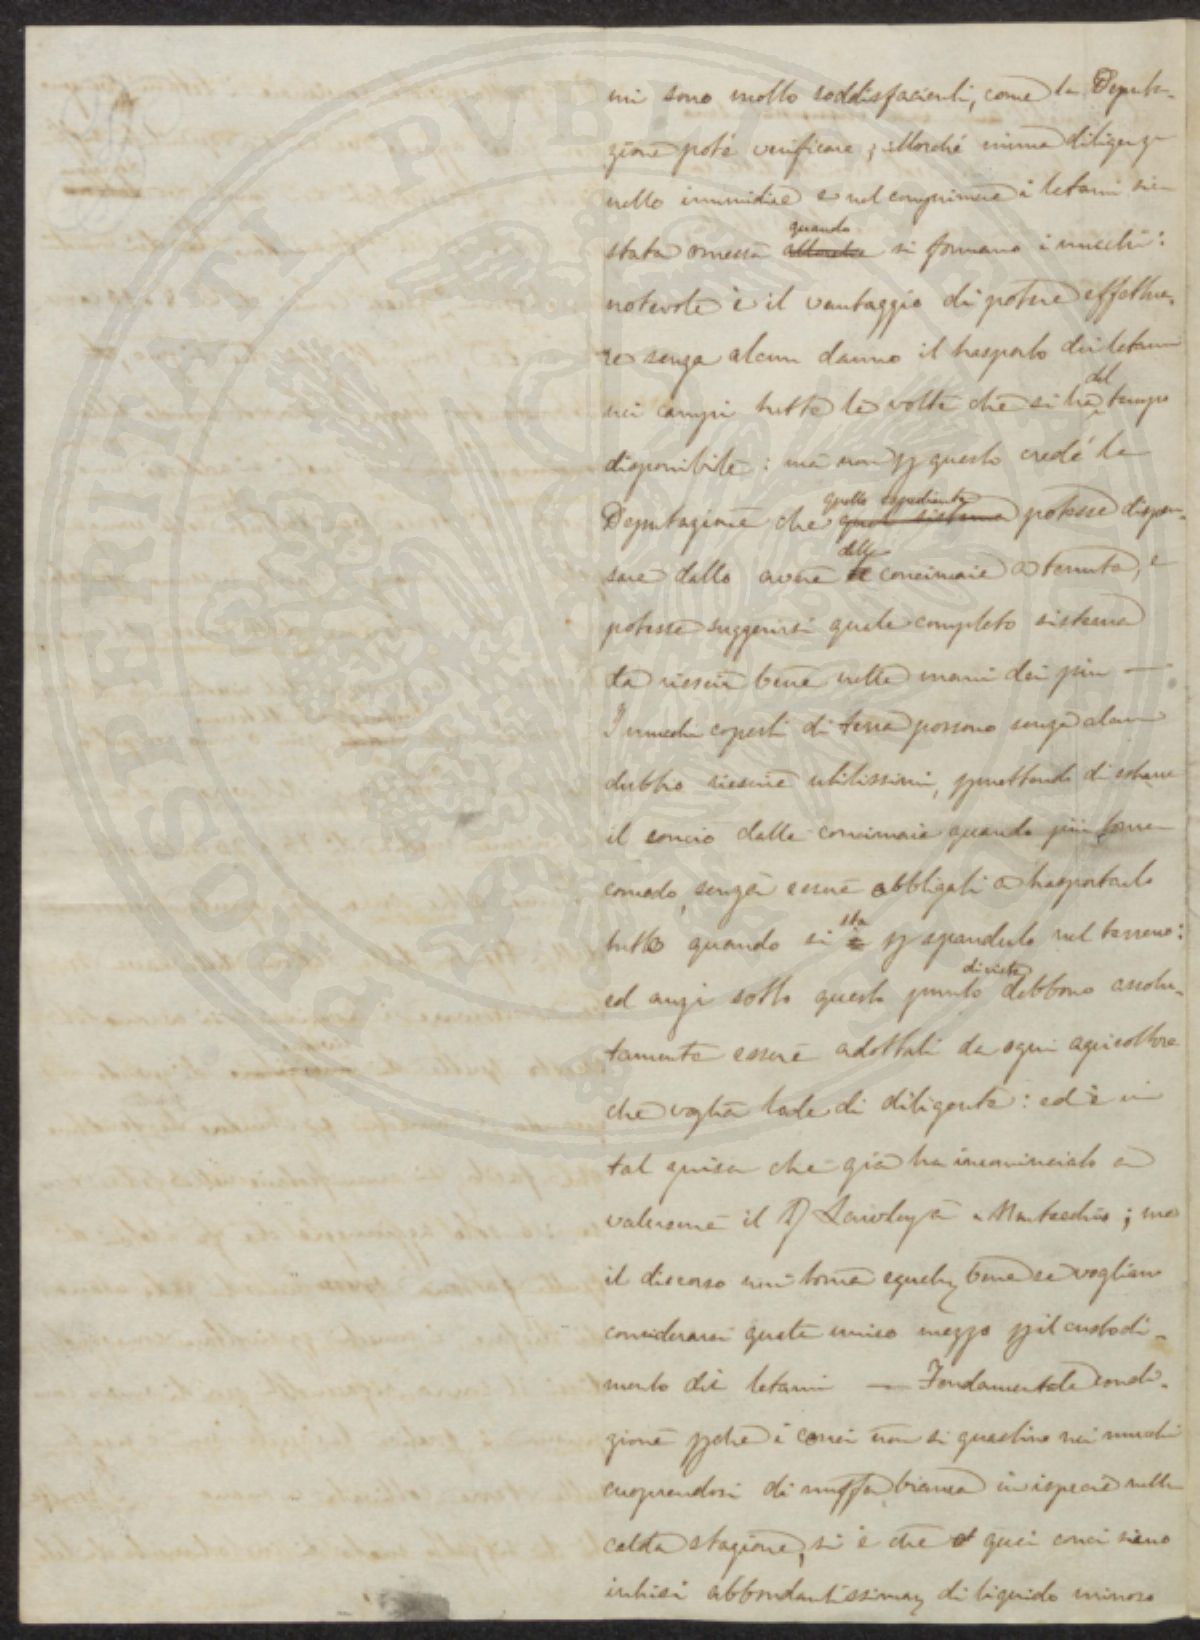 mi sono molto soddisfacienti, come la Deputa-
zione poté verificare; allorché niuna diligenza
nello inumidire e nel comprimere i letami sia
stata omessa quando allorché si formano i mucchi:
notevole è il vantaggio di potere effettua-
re senza alcun danno il trasporto dei letami
nei campi tutte le volte che si ha del tempo
disponibile: ma non p questo credé la
Deputazione che quello espediente quel sistema potesse dispen-
sare dallo avere delle le concimaie a tenuta, e
potesse suggerirsi quale completo sistema
da riescir bene nelle mani dei più —
I mucchi coperti di terra possono senza alcun
dubbio riescire utilissimi, pmettendo di estrarre
il concio dalle concimaie quando più torna
comodo, senza essere obbligati a trasportarlo
tutto quando si sta è p spanderlo nel terreno:
ed anzi sotto questo punto di vista debbono assolu-
tamente essere adottati da ogni agricoltore
che voglia lode di diligente: ed è in
tal guisa che già ha incominciato a
valersene il a Montecchio; ma
il discorso non torna egualm bene se vogliano
considerarsi quale unico mezzo p il custodi-
mento dei letami — Fondamentale condi-
zione pché i conci non si guastino nei mucchi
cuoprendosi di muffa bianca in ispecie nella
calda stagione, si è che quei conci sieno
intrisi abbondantissimam di liquido minoso